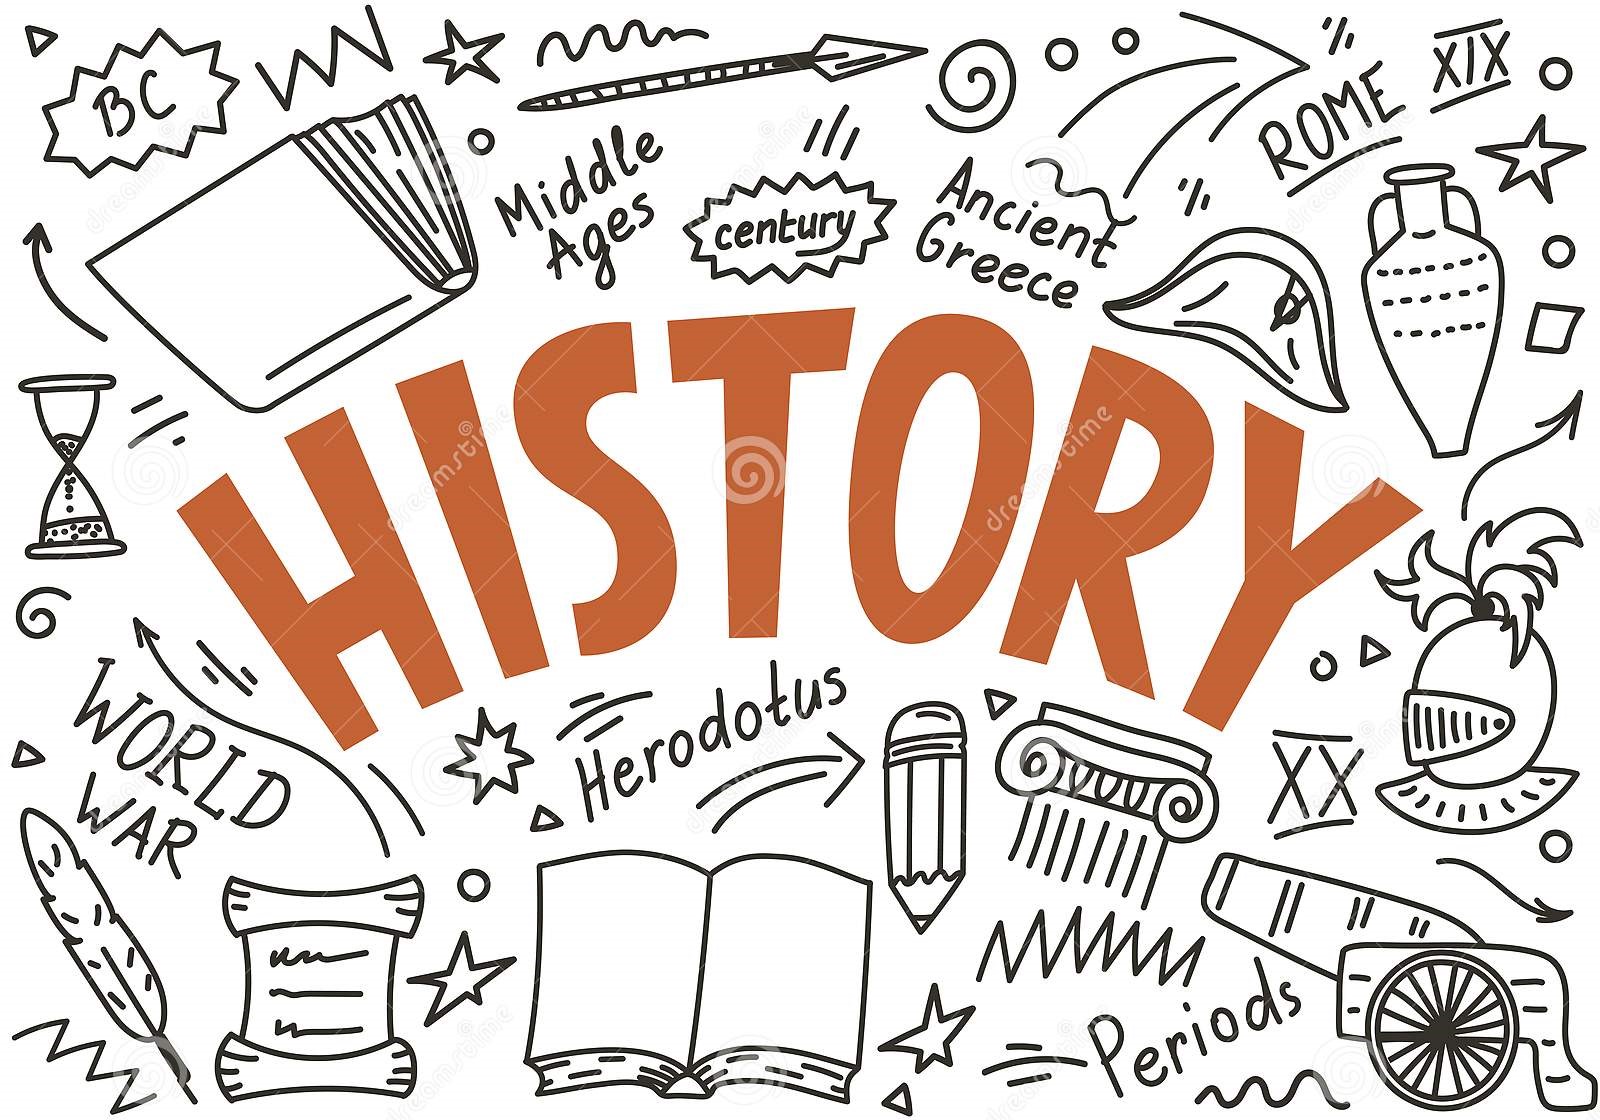 BC
Middle
Ages
century
Ancient
Greece
ROME
XIX
HISTORY
WORLD
WAR
Herodotus
XX
Periods
dreamstime